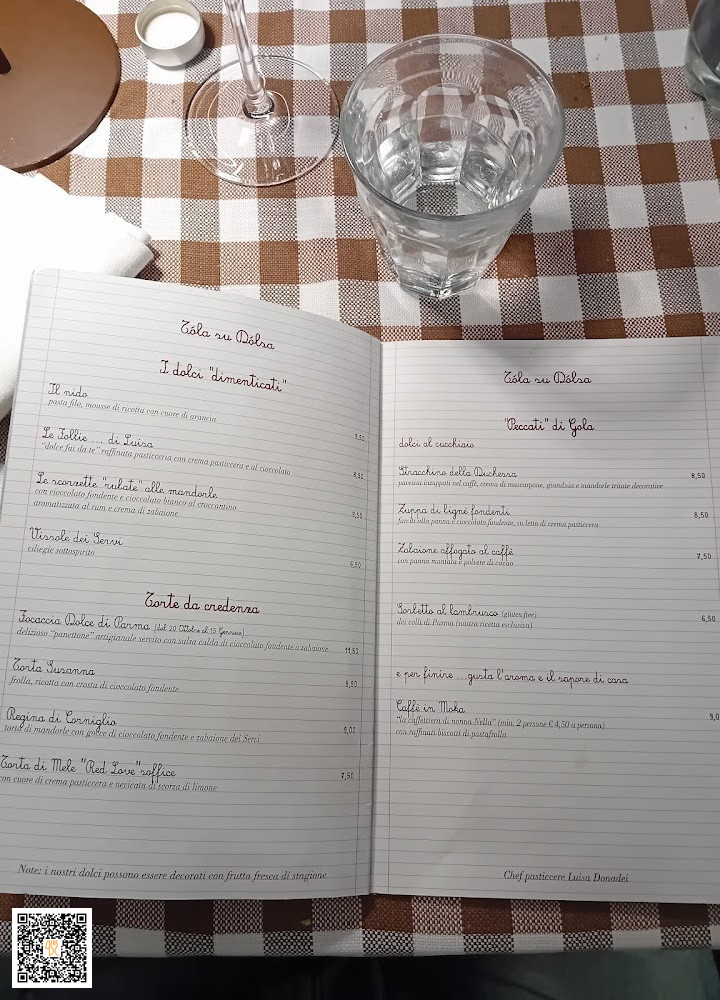 Tóla su Dólsa
I dolci "dimenticati"
Il nido
pasta fillo, mousse di ricotta con cuore di arancia
Le Follie ... di Luisa
"dolce fai da te" raffinata pasticceria con crema pasticcera e al cioccolato 8,50
Le scorzette "rubate" alle mandorle
con cioccolato fondente e cioccolato bianco al croccantino
aromatizzata al rum e crema di zabaione
Vissole dei Servi
ciliegie sottospirito 6,50
Torte da credenza
Focaccia Dolce di Parma (dal 20 Ottobre al 15 Gennaio)
delizioso "panettone" artigianale servito con salsa calda di cioccolato fondente o zabaione 11,50
Torta Susanna
frolla, ricotta con crosta di cioccolato fondente 8,50
Regina di Corniglio
torta di mandorle con gocce di cioccolato fondente e zabaione dei Servi 9,00
Torta di Mele "Red Love" soffice
con cuore di crema pasticcera e nevicata di scorza di limone 7,50
Note: i nostri dolci possono essere decorati con frutta fresca di stagione
Tóla su Dólsa
"Peccati" di Gola
dolci al cucchiaio
Stracchino della Duchessa 8,50
pavesini inzuppati nel caffè, crema di mascarpone, gianduia e mandorle tritate decorative
Zuppa di bignè fondenti 8,50
farciti alla panna e cioccolato fondente, su letto di crema pasticcera
Zabaione affogato al caffè 7,50
con panna montata e polvere di cacao
Sorbetto al lambrusco (gluten free) 6,50
dei colli di Parma (nostra ricetta esclusiva)
e per finire ... gusta l'aroma e il sapore di casa
Caffè in Moka 9,0
"la caffettiera di nonna Nella" (min. 2 persone € 4,50 a persona)
con raffinati biscotti di pastafrolla
Chef pasticcere Luisa Donadei